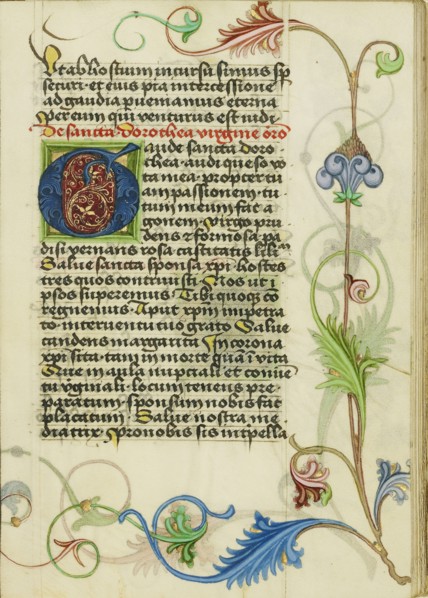 Vt ab hostium incursu simus sp
securi et eius pia intercessione
ad gaudia pueniamus eterna
Per eum qui venturus est iudi
De sancta dorothea virgine oro
Gaude sancta doro
thea audi queso vo
ta mea propter tu
am passionem tu
tum me um fac a
gonem virgo pru
dens et formosa pa
disi vernans rosa castitatis lili
Salue sancta sponsa xpi hostes
tres quos contriuisti Nos ut i
psos superemus Tibi quoque co
regnemus Aput xpm impetra
to interuentu tuo grato Salue
candens margarita In corona
xpi sita tam in morte qua i vita
in aula nupciali et
tu vginali locum tenens pre
paratum sponsum nobis fac
placatum Salue nostra me
diatrix pro nobis sis